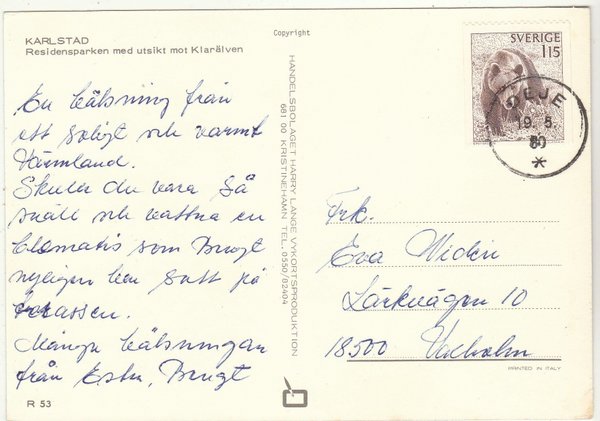 KARLSTAD
Residensparken med utsikt mot Klarälven
En hälsning från
ett soligt och varmt
Värmland.
Skulle du vara så
snäll och vattna en
Clematis som Bengt
nyligen har satt på
terrassen.
Många hälsningar
från Ester, Bengt
R 53
Copyright
HANDELSBOLAGET HARRY LANGE VYKORTSPRODUKTION
681 00 KRISTINEHAMN TEL. 0550/82404
SVERIGE
115
DEJE
19.5.
80
Frk.
Eva Widén
Lärkvägen 10
18500 Vaxholm
PRINTED IN ITALY